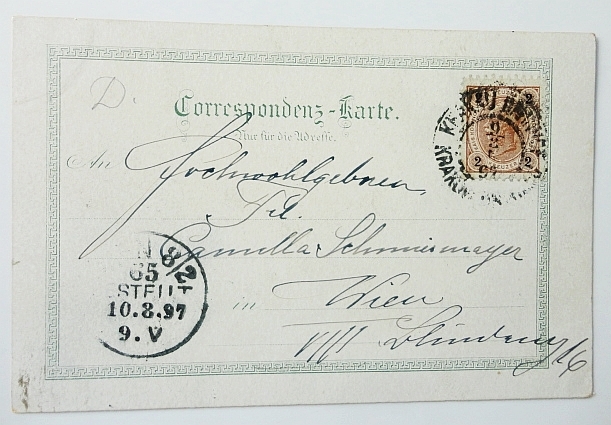 D.
Correspondenz-Karte.
Nur für die Adresse.
An Hochwohlgeboren
Frl.
Camilla Schmiesmayer
in Wien
2
2
KRAKAU
97
N 8/2
65
STELLT
10.8.97
9.V